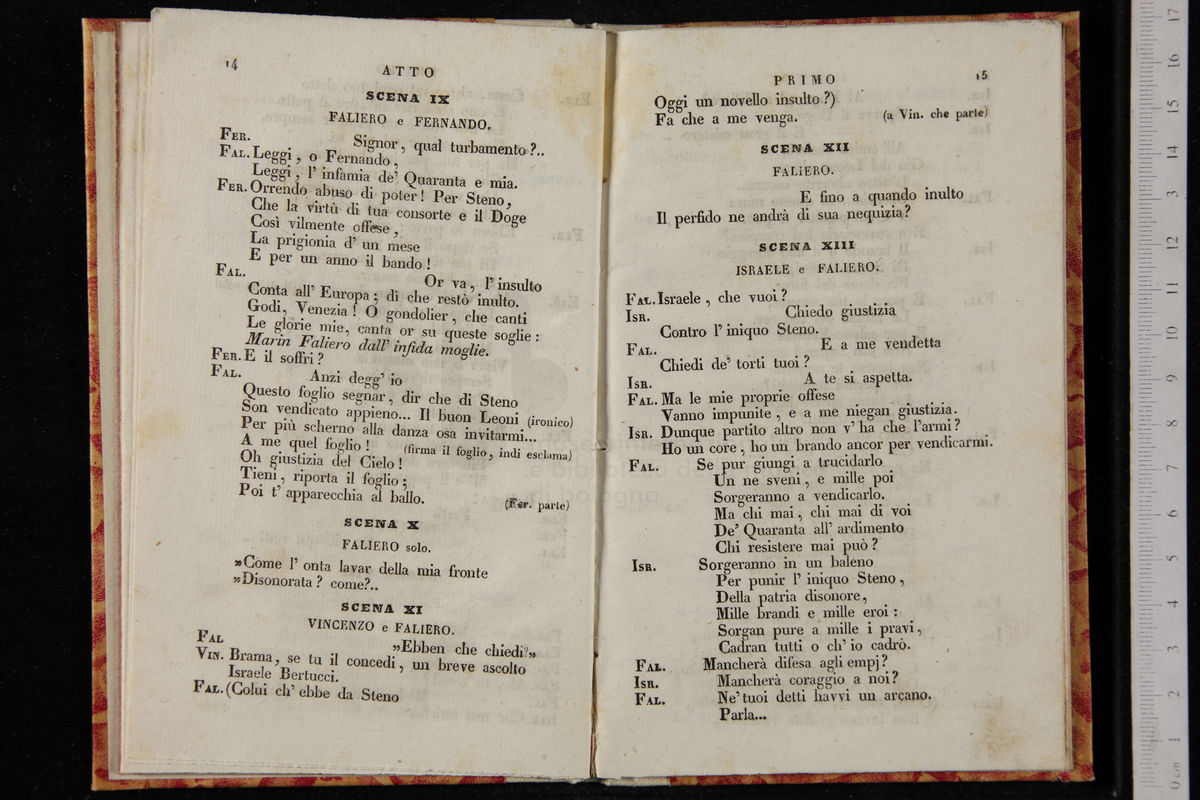 14
ATTO
SCENA IX
FALIERO e FERNANDO.
FER. Signor, qual turbamento?..
FAL. Leggi, o Fernando,
Leggi, l' infamia de' Quaranta e mia.
FER. Orrendo abuso di poter! Per Steno,
Che la virtù di tua consorte e il Doge
Così vilmente offese,
La prigionia d' un mese
E per un anno il bando!
FAL. Or va, l' insulto
Conta all' Europa; di che restò inulto.
Godi, Venezia! O gondolier, che canti
Le glorie mie, canta or su queste soglie:
Marin Faliero dall' infida moglie.
FER. E il soffri?
FAL. Anzi degg' io
Questo foglio segnar, dir che di Steno
Son vendicato appieno... Il buon Leoni (ironico)
Per più scherno alla danza osa invitarmi...
A me quel foglio! (firma il foglio, indi esclama)
Oh giustizia del Cielo!
Tieni, riporta il foglio;
Poi t' apparecchia al ballo. (Fer. parte)
SCENA X
FALIERO solo.
»Come l' onta lavar della mia fronte
»Disonorata? come?..
SCENA XI
VINCENZO e FALIERO.
FAL »Ebben che chiedi?»
VIN. Brama, se tu il concedi, un breve ascolto
Israele Bertucci.
FAL. (Colui ch' ebbe da Steno
PRIMO
15
Oggi un novello insulto?)
Fa che a me venga. (a Vin. che parte)
SCENA XII
FALIERO.
E fino a quando inulto
Il perfido ne andrà di sua nequizia?
SCENA XIII
ISRAELE e FALIERO.
FAL. Israele, che vuoi?
ISR. Chiedo giustizia
Contro l' iniquo Steno.
FAL. E a me vendetta
Chiedi de' torti tuoi?
ISR. A te si aspetta.
FAL. Ma le mie proprie offese
Vanno impunite, e a me niegan giustizia.
ISR. Dunque partito altro non v' ha che l'armi?
Ho un core, ho un brando ancor per vendicarmi.
FAL. Se pur giungi a trucidarlo
Un ne sveni, e mille poi
Sorgeranno a vendicarlo.
Ma chi mai, chi mai di voi
De' Quaranta all' ardimento
Chi resistere mai può?
ISR. Sorgeranno in un baleno
Per punir l' iniquo Steno,
Della patria disonore,
Mille brandi e mille eroi:
Sorgan pure a mille i pravi,
Cadran tutti o ch' io cadrò.
FAL. Mancherà difesa agli empj?
ISR. Mancherà coraggio a noi?
FAL. Ne' tuoi detti havvi un arcano.
Parla...